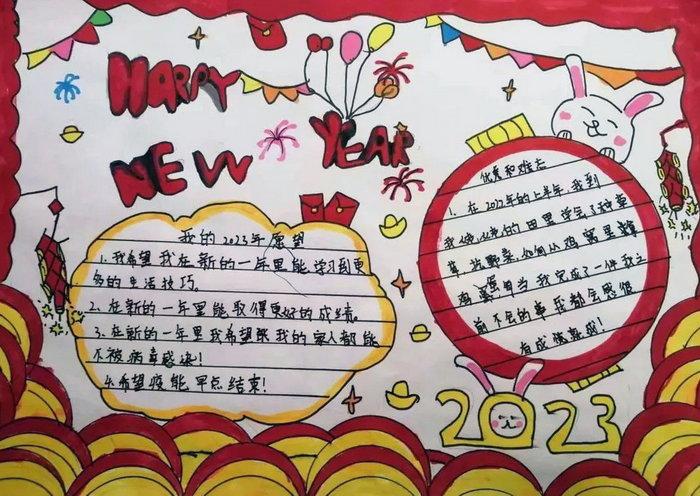 HAPPY
NEW YEAR
我的2023年愿望
1.我希望我在新的一年里能学习到更
多的生活技巧。
2.在新的一年里能取得更好的成绩。
3.在新的一年里我希望跟我的家人都能
不被病毒感染!
4.希望疫能早点结束!
优美和难忘
1.在2022年的上半年,我到
我的日里学会了种
草,找野菜,如何从鸡窝里
鸡蛋,每当我完成了一件我之
前不会的事我都会感很
有成就感!
2023